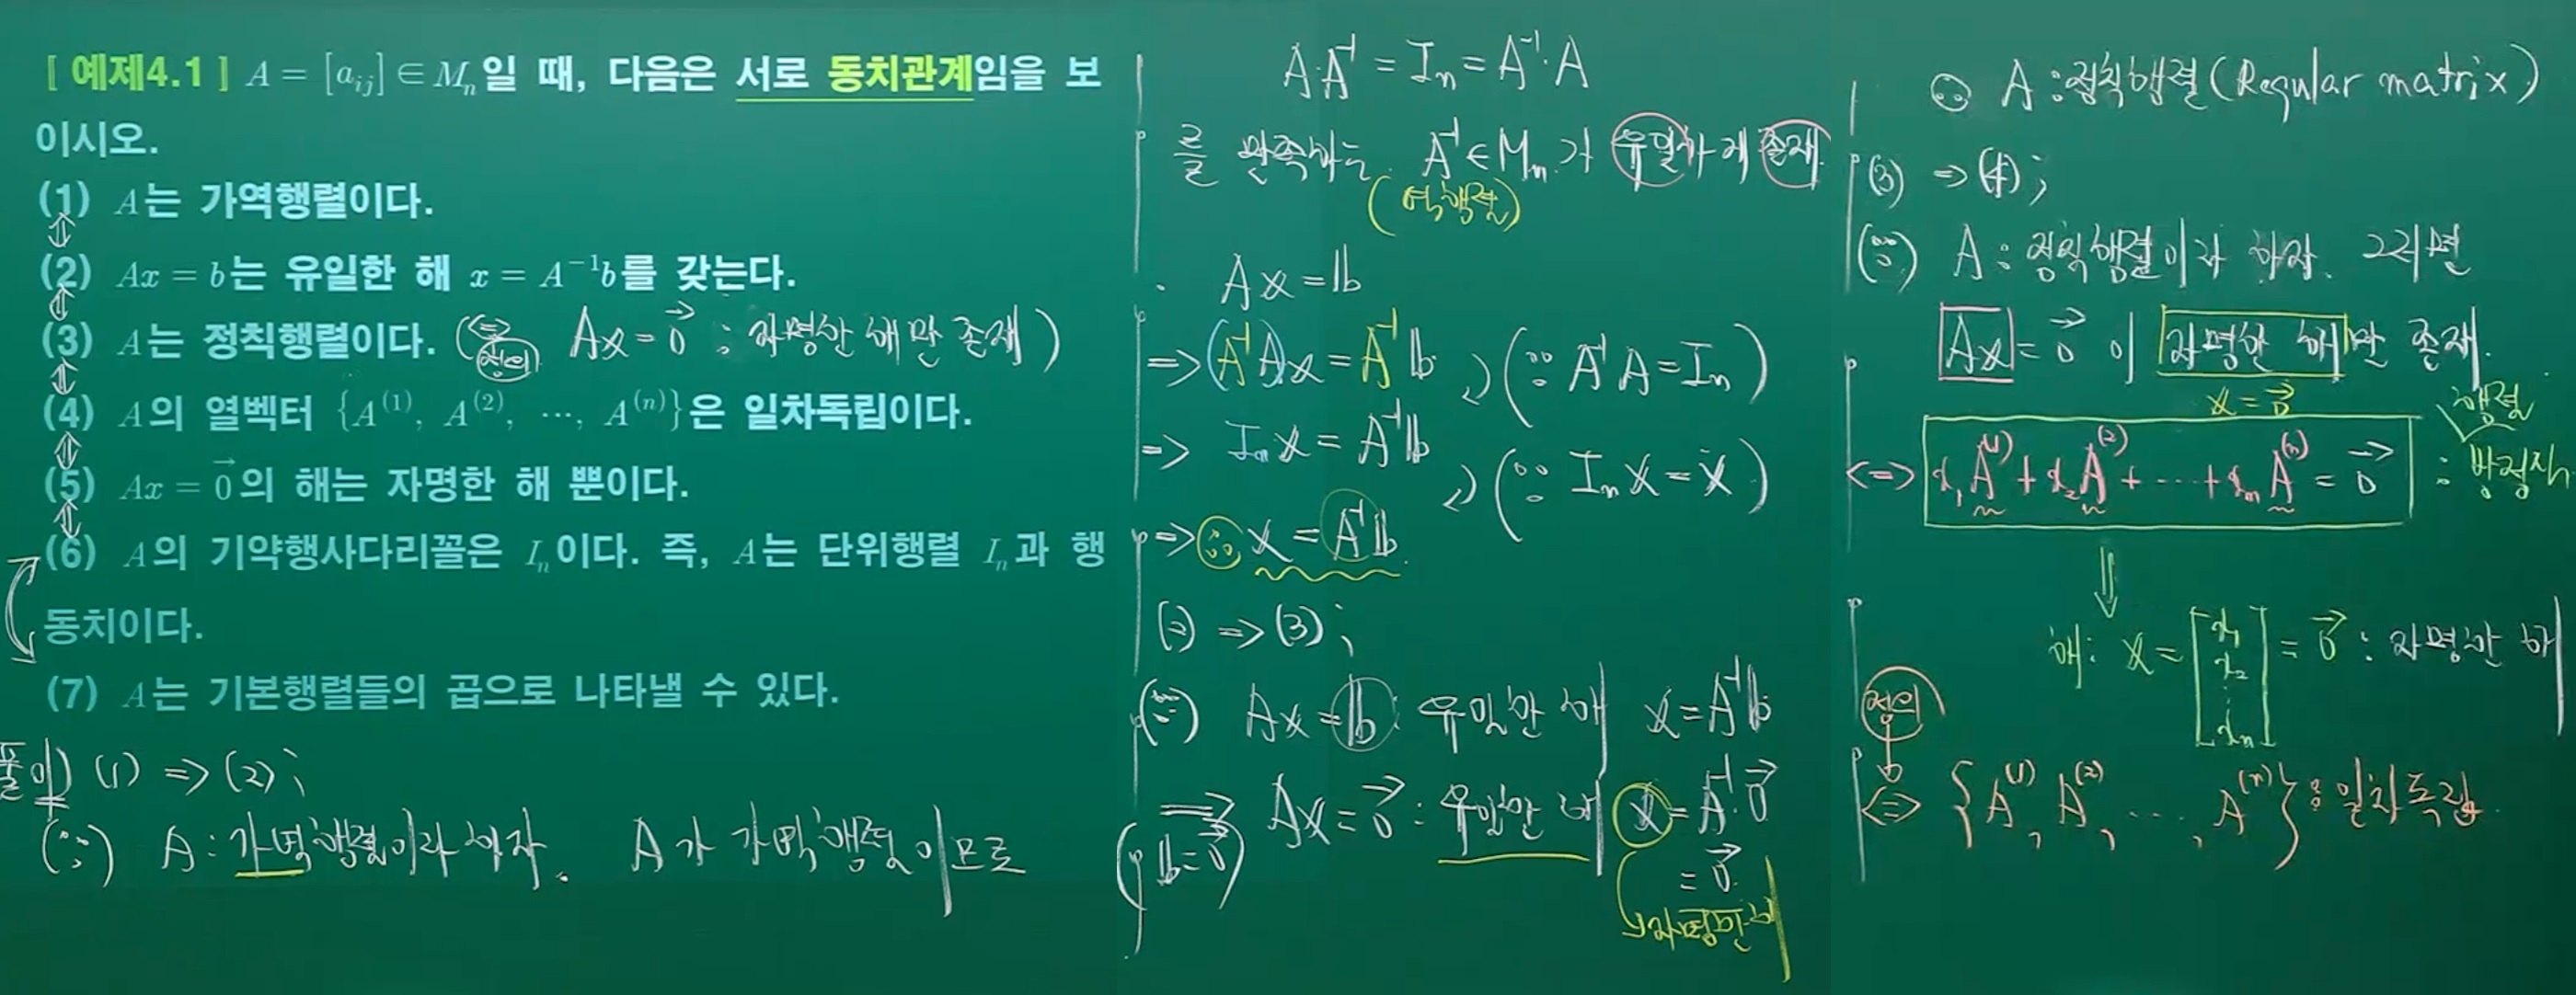 [ 예제4.1 ] A = [a_{ij}] ∈ M_n일 때, 다음은 서로 동치관계임을 보
이시오.
(1) A는 가역행렬이다.
⇕
(2) Ax = b는 유일한 해 x = A^{-1}b를 갖는다.
⇕
(3) A는 정칙행렬이다. (⇔ 정의 Ax = \vec{0} : 자명한 해만 존재)
⇕
(4) A의 열벡터 {A^{(1)}, A^{(2)}, ⋯, A^{(n)}}은 일차독립이다.
⇕
(5) Ax = \vec{0}의 해는 자명한 해 뿐이다.
⇕
(6) A의 기약행사다리꼴은 I_n이다. 즉, A는 단위행렬 I_n과 행
동치이다.
(7) A는 기본행렬들의 곱으로 나타낼 수 있다.
풀이) (1) ⇒ (2);
(∵) A : 가역행렬이라 하자. A가 가역행렬이므로
A·A^{-1} = I_n = A^{-1}·A
를 만족하는 A^{-1} ∈ M_n가 유일하게 존재.
(역행렬)
Ax = b
⇒ (A^{-1}A)x = A^{-1}b (∵ A^{-1}A = I_n)
⇒ I_n x = A^{-1}b
(∵ I_n x = x)
⇒ ∴ x = A^{-1}b.
(2) ⇒ (3);
(∵) Ax = b : 유일한 해 x = A^{-1}b
⇒ Ax = \vec{0} : 유일한 해 x = A^{-1}·\vec{0}
(b = \vec{0})
= \vec{0}.
자명한 해
∴ A : 정칙행렬 (Regular matrix)
(3) ⇒ (4);
(∵) A : 정칙행렬이라 하자. 그러면
Ax = \vec{0} 이 자명한 해만 존재.
x = \vec{0}
행렬
⇔ x_1A^{(1)} + x_2A^{(2)} + ⋯ + x_nA^{(n)} = \vec{0} : 방정식
⇓
해: x = [x_1 x_2 ⋮ x_n] = \vec{0} : 자명한 해
정의
⇔ {A^{(1)}, A^{(2)}, ⋯, A^{(n)}} : 일차독립.